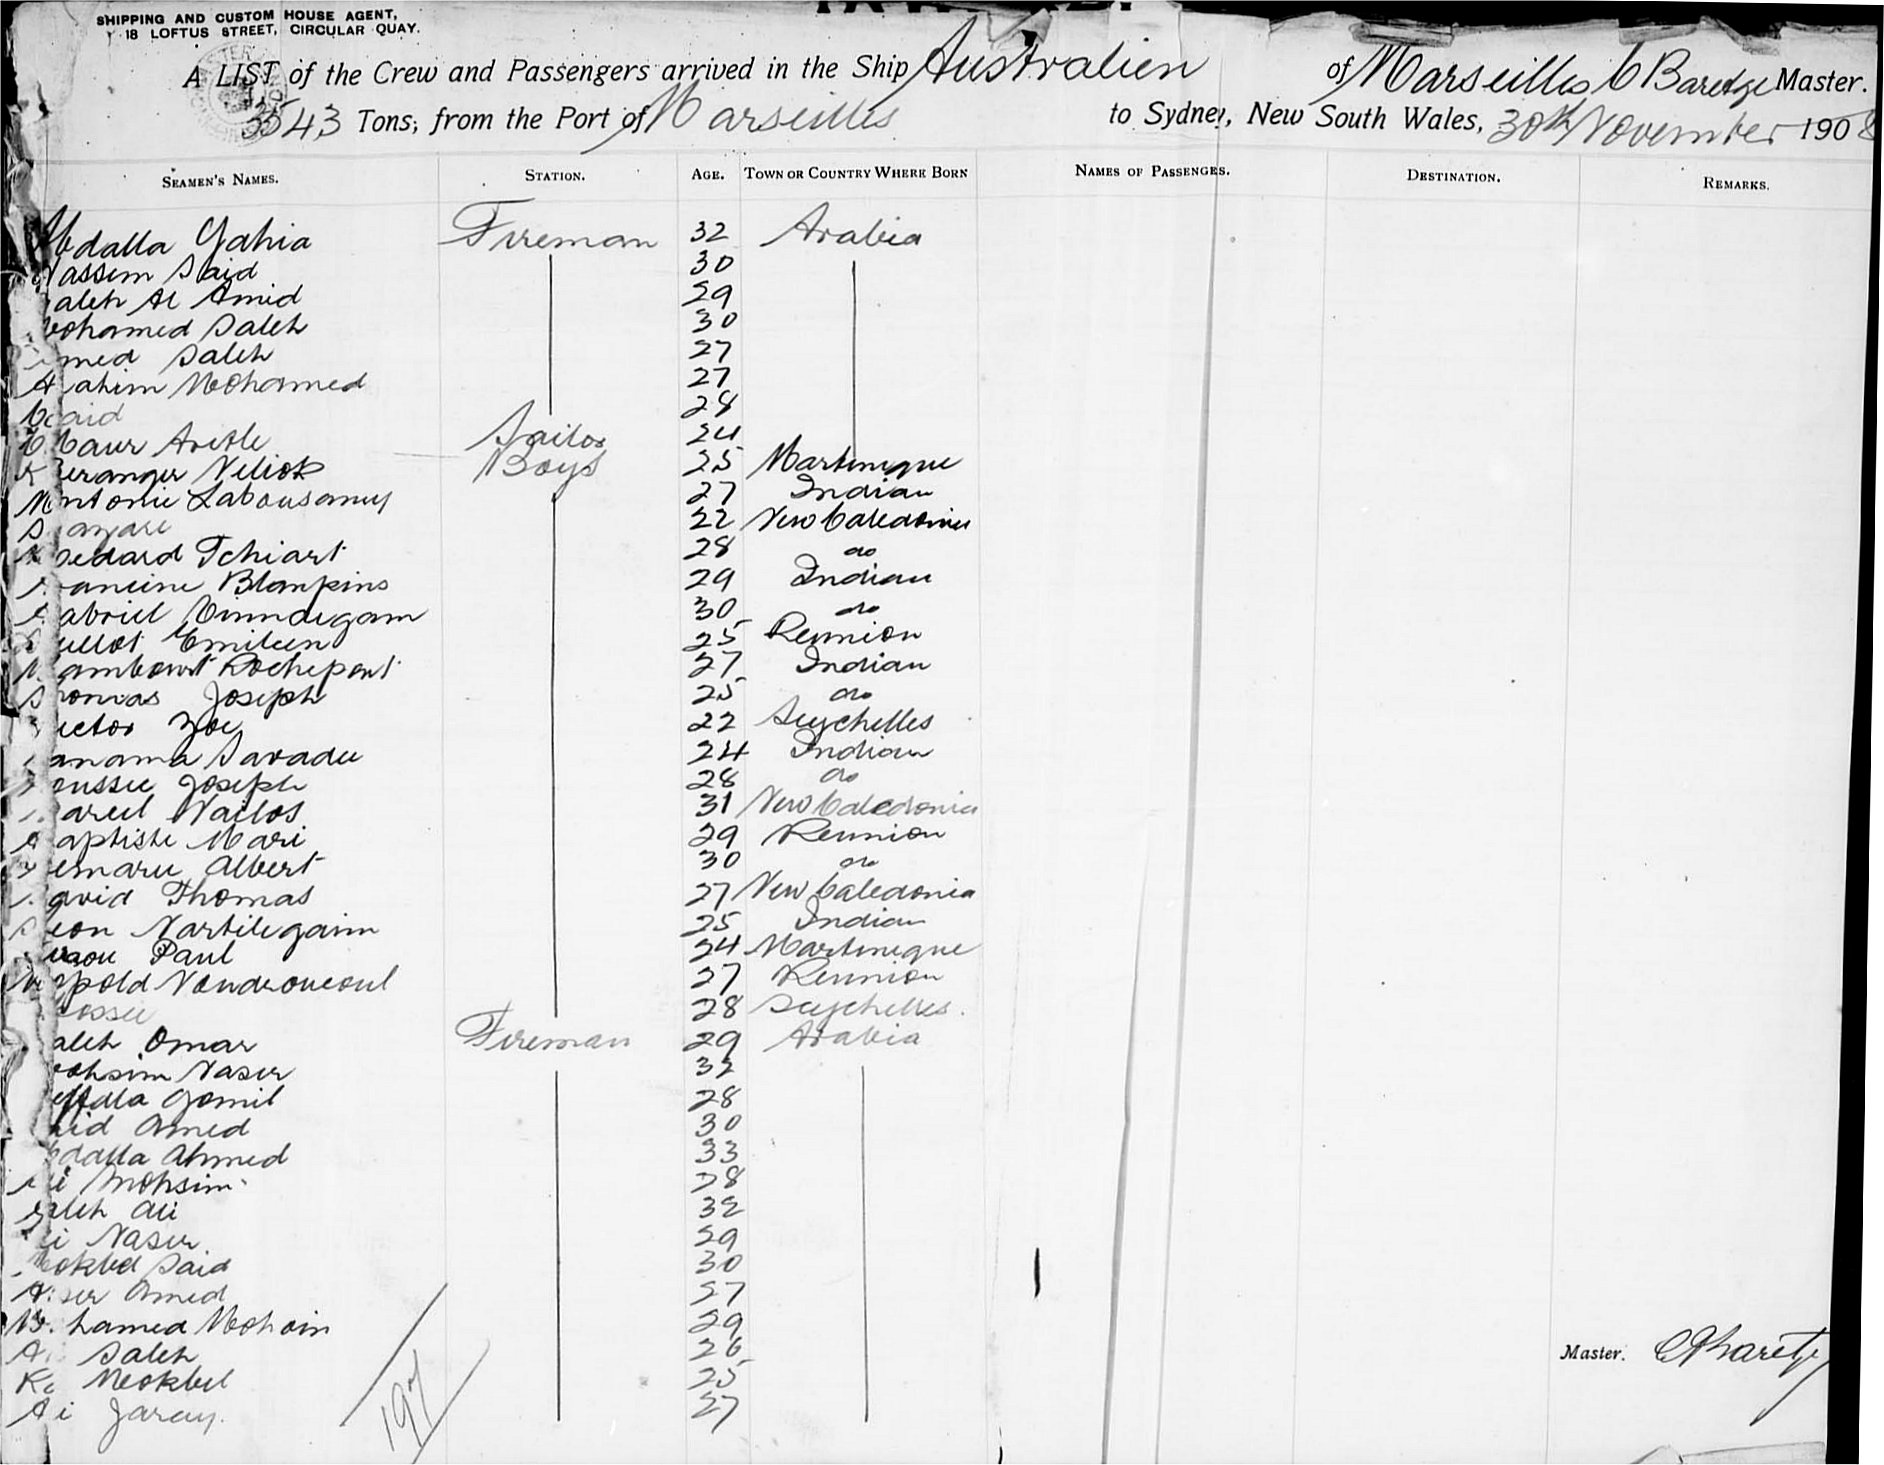 SHIPPING AND CUSTOM HOUSE AGENT,
18 LOFTUS STREET, CIRCULAR QUAY.
A LIST of the Crew and Passengers arrived in the Ship Australien of Marseilles C Baretge Master.
3543 Tons; from the Port of Marseilles to Sydney, New South Wales, 30th November 1908
SEAMEN'S NAMES. STATION. AGE. TOWN OR COUNTRY WHERE BORN NAMES OF PASSENGERS. DESTINATION. REMARKS.
Abdalla Yahia Fireman 32 Arabia
Nassem Said 30
aleh Al Amid 29
Mohamed Saleh 30
med Saleh 27
ahim Mohamed 27
aid 28
Sailor 24
Beranger Boys 25 Martinique
Antonie Labousamy 27 Indian
22 New Caledonia
Medard Tchiart 28 do
Francine Blampins 29 Indian
Gabriel Cinnaigam 30 do
ullot Emileen 25 Reunion
ambourt Rochepont 27 Indian
Thomas Joseph 25 do
Victor Zoe 22 Seychelles
anama Savadu 24 Indian
oussee Joseph 28 do
Marcel Nailos 31 New Caledonia
Baptiste Mari 29 Reunion
emaru Albert 30 do
David Thomas 27 New Caledonia
Leon Nartilegaim 25 Indian
Paul 24 Martinique
Leopold Vouderoucoul 27 Reunion
ossee 28 Seychelles.
aleh Omar Fireman 29 Arabia
ohsim Naser 32
Gomil 28
aid Amed 30
bdalla Ahmed 33
Ali Mohsim 28
Saleh Ali 32
Ali Naser 29
Mokbel Said 30
Naser Amed 27
Mohamed Mohsin 29
Ali Saleh 26
Ka Mokbel 25
Ali Jaray. 27
197
Master. C Baretge